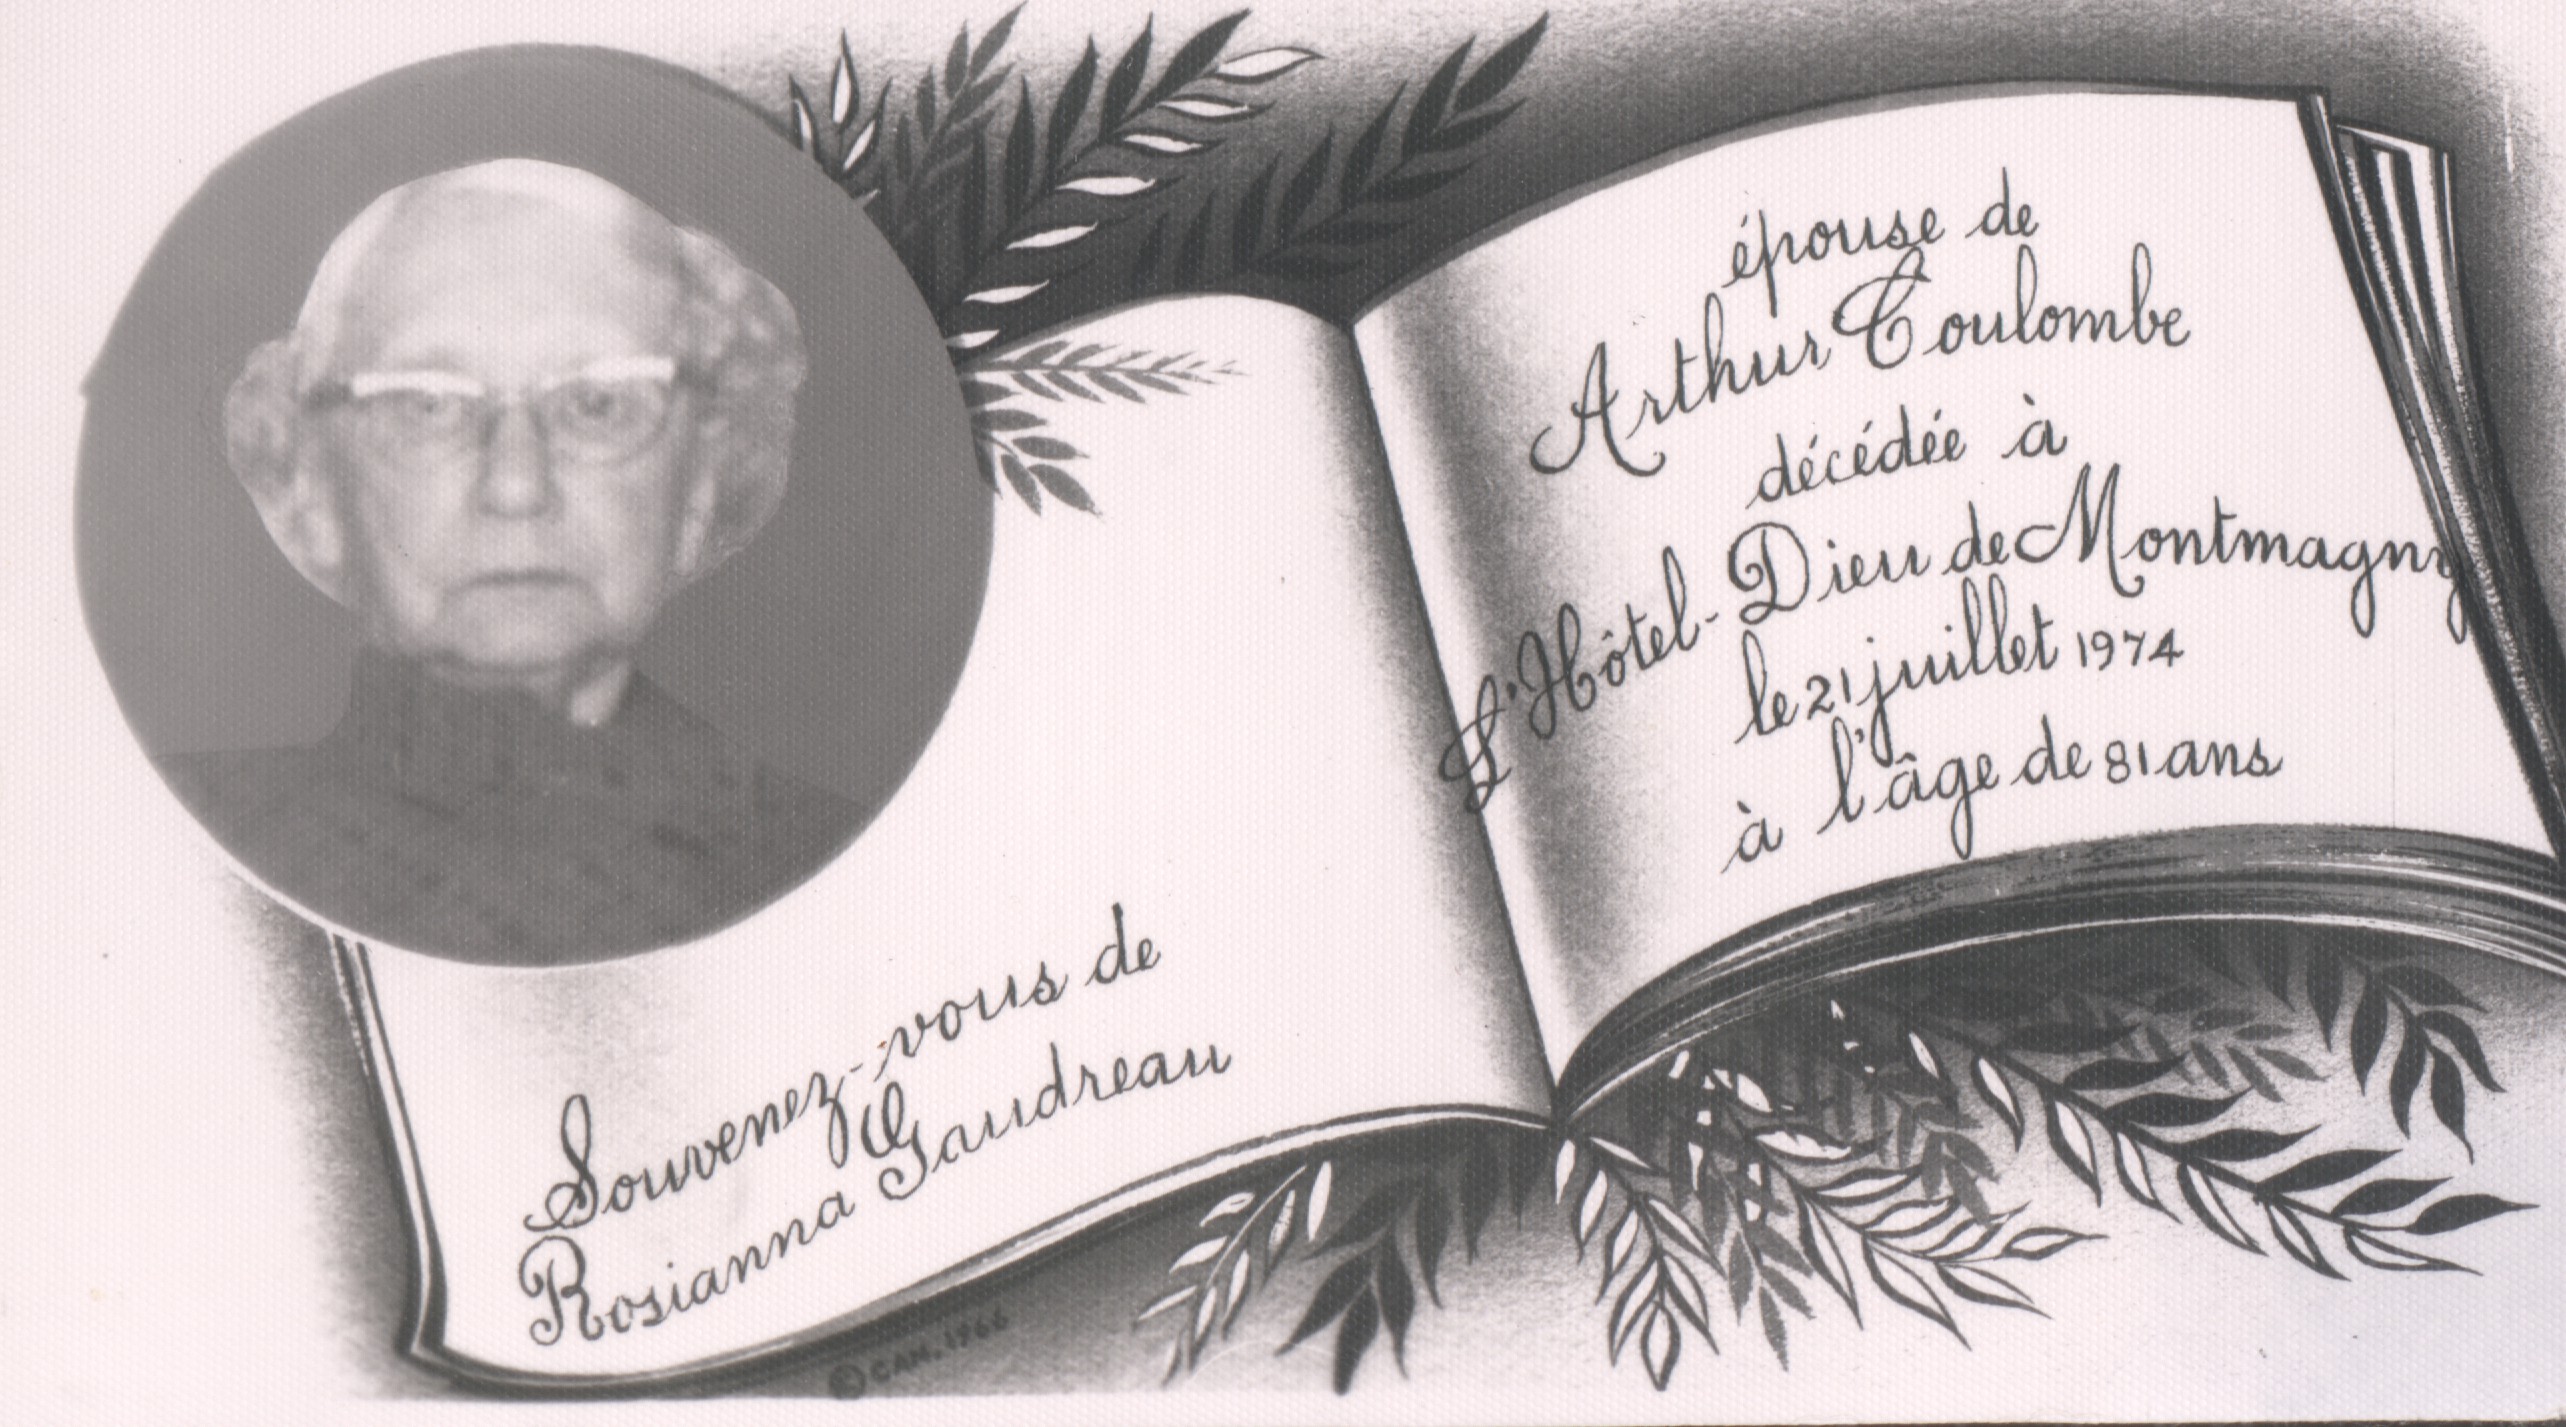 Souvenez-vous de
Rosianna Gaudreau
© CAN. 1966
épouse de
Arthur Coulombe
décédée à
L'Hôtel-Dieu de Montmagny
le 21 juillet 1974
à l'âge de 81 ans